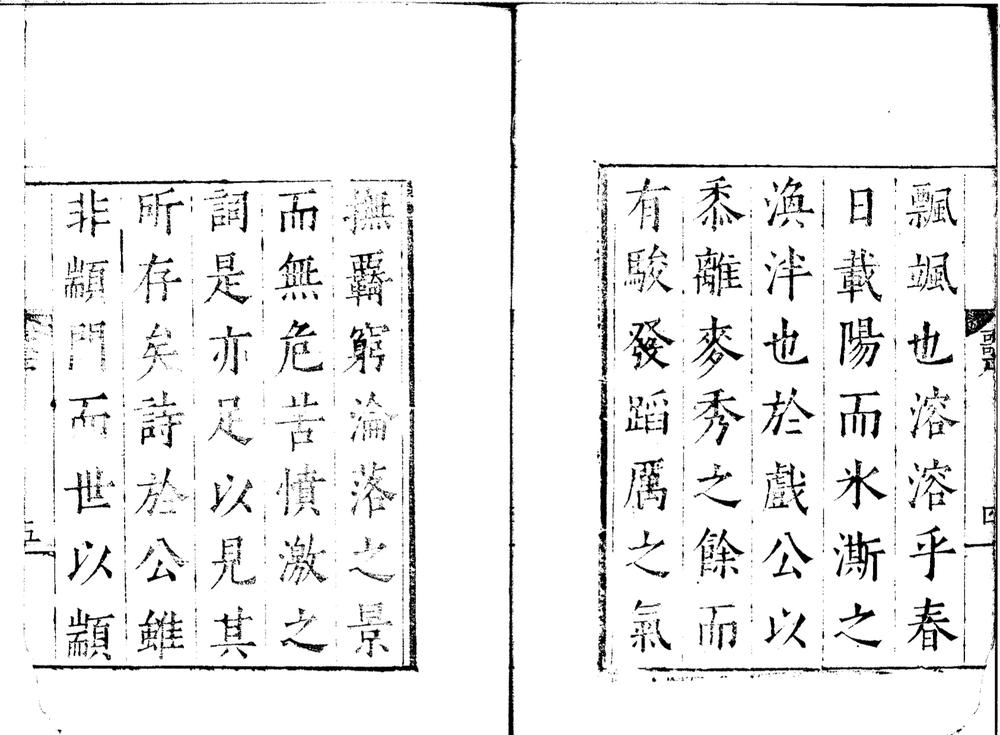 飄颯也溶溶乎春
日載陽而氷澌之
渙泮也於戲公以
黍離麥秀之餘而
有駿發蹈厲之氣
四
撫覊窮淪落之景
而無危苦憤激之
詞是亦足以見其
所存矣詩於公雖
非顓門而世以顓
五